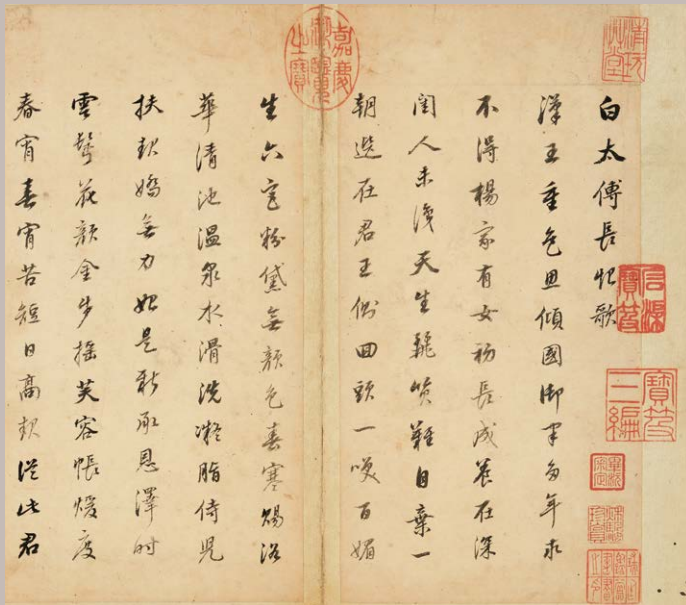 白太傅長恨歌
漢王重色思傾國御宇多年求
不得楊家有女初長成養在深
閨人未識天生麗質難自棄一
朝選在君王側回頭一咲百媚
生六宮粉黛無顏色春寒賜浴
華清池溫泉水滑洗凝脂侍兒
扶起嬌無力始是新承恩澤時
雲鬢花顏金步搖芙容帳煖度
春宵春宵苦短日高起從此君
嘉慶御覽之寶
石渠寶笈
寶笈三編